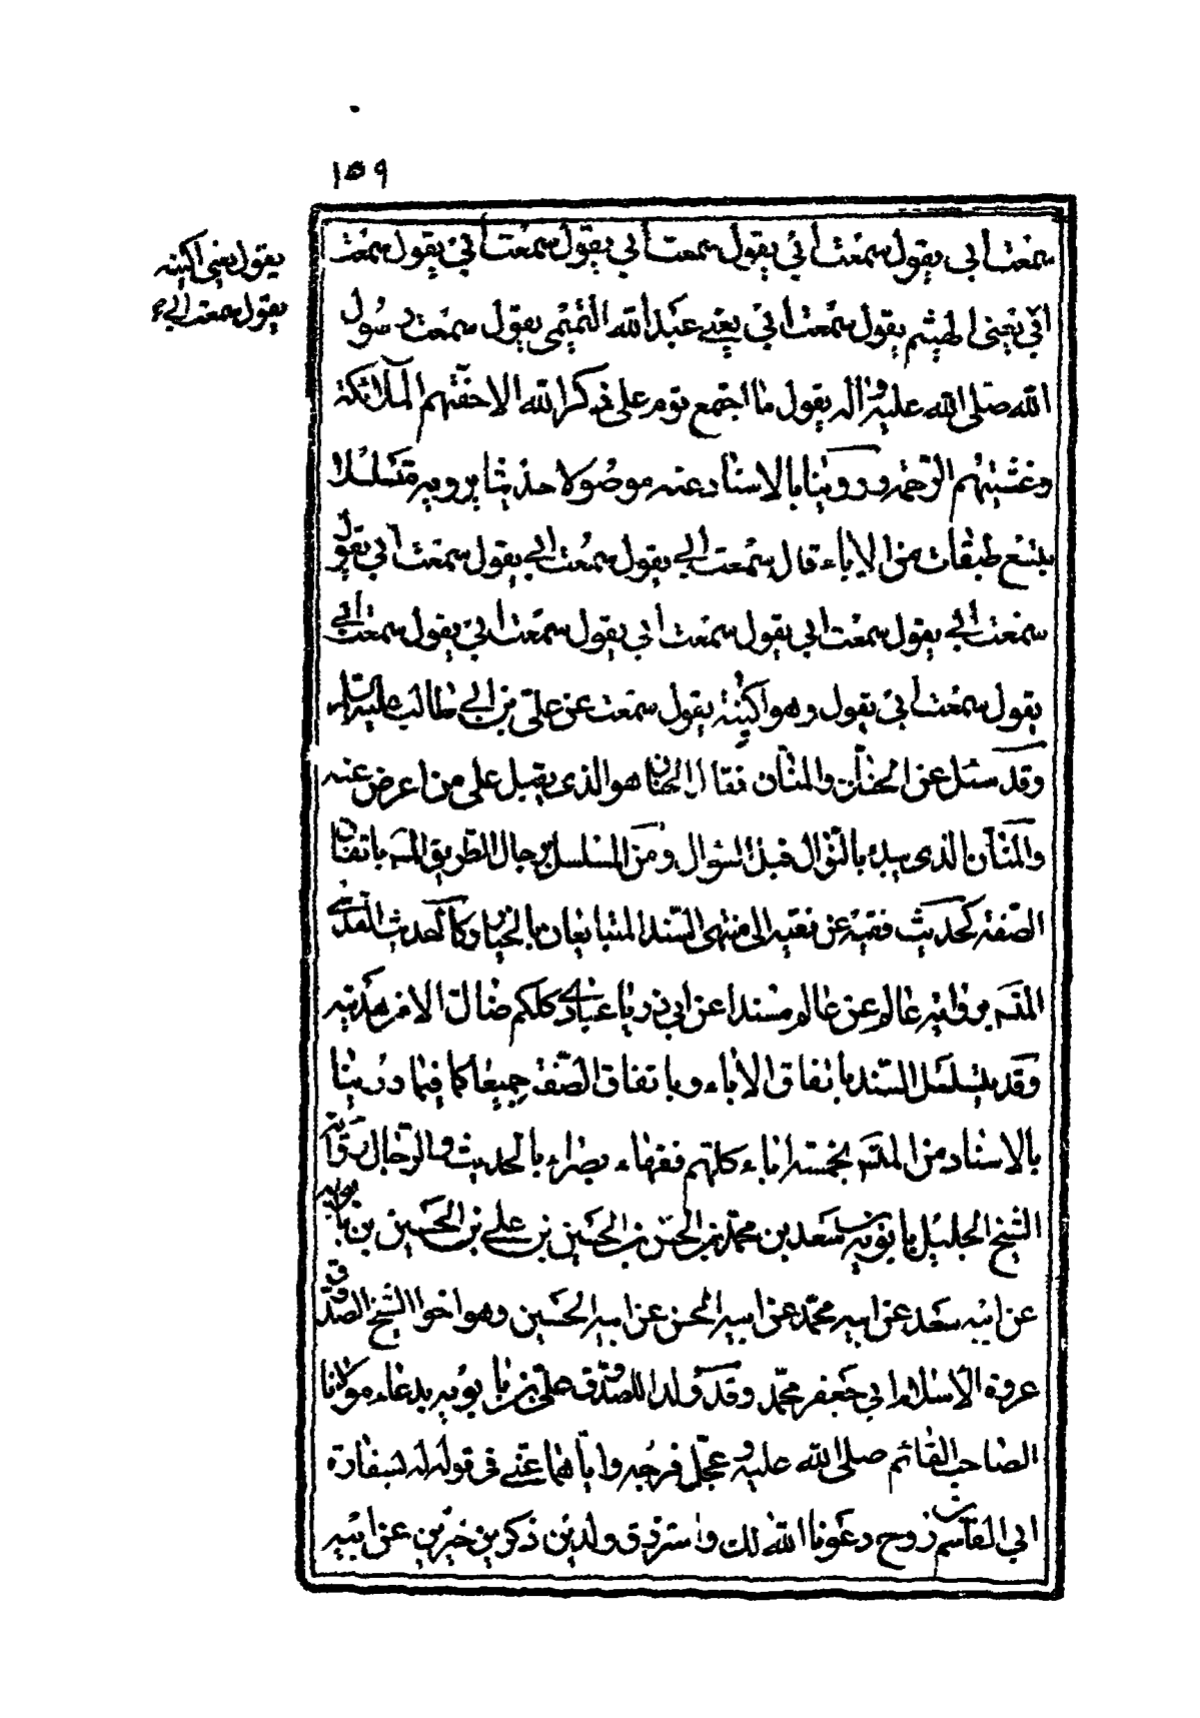 ١٥٩
سمعت أبي يقول سمعت أبي يقول سمعت أبي يقول سمعت أبي يقول سمعت
ابي يعنى الهيثم يقول سمعت ابي يعني عبد الله التميمي يقول سمعت رسول
الله صلى الله عليه وآله يقول ما اجتمع قوم على ذكر الله الا حفتهم الملائكة
وغشيتهم الرحمة وروينا بالاسناد عنه موصولا حديثا يرويه متسلسلا
بتسع طبقات من الاباء قال سمعت ابي يقول سمعت ابي يقول سمعت ابي يقول
سمعت ابي يقول سمعت ابي يقول سمعت ابي يقول سمعت ابي يقول سمعت ابي
يقول سمعت ابي يقول وهو اكينة يقول سمعت عن علي بن ابي طالب عليه السلام
وقد سئل عن الحنان والمنان فقال الحنان هو الذى يقبل على من اعرض عنه
والمنان الذى يبدء بالنوال قبل السؤال ومن المسلسل برجال الطريق المتسم باتفاق
الصفة كحديث فقيه عن فقيه الى منتهى السند المتبايعان بالخيار وكالحديث القدسي
المتسم برواية عالم عن عالم مسندا عن ابي ذر يا عبادي كلكم ضال الا من هديته
وقد يتسلسل السند باتفاق الاباء وباتفاق الصفة جميعا كما فيما روينا
بالاسناد من المتسم بخمسة اباء كلهم فقهاء بصراء بالحديث والرجال
الشيخ الجليل بابويه بن سعد بن محمد بن الحسن بن الحسين بن علي بن الحسين بن بابويه
عن ابيه سعد عن ابيه محمد عن ابيه الحسن عن ابيه الحسين وهو اخوا الشيخ الصدوق
عروة الاسلام ابي جعفر محمد وقد ولدا للصدوق علي بن بابويه بدعاء مولانا
الصاحب القائم صلى الله عليه وعجل فرجه واياهما عنى في قوله له بسفارة
ابي القاسم بن روح دعونا الله لك واسترزق ولدين ذكرين خيرين عن ابيه
يقول يعنى اكينه
يقول سمعت ابي